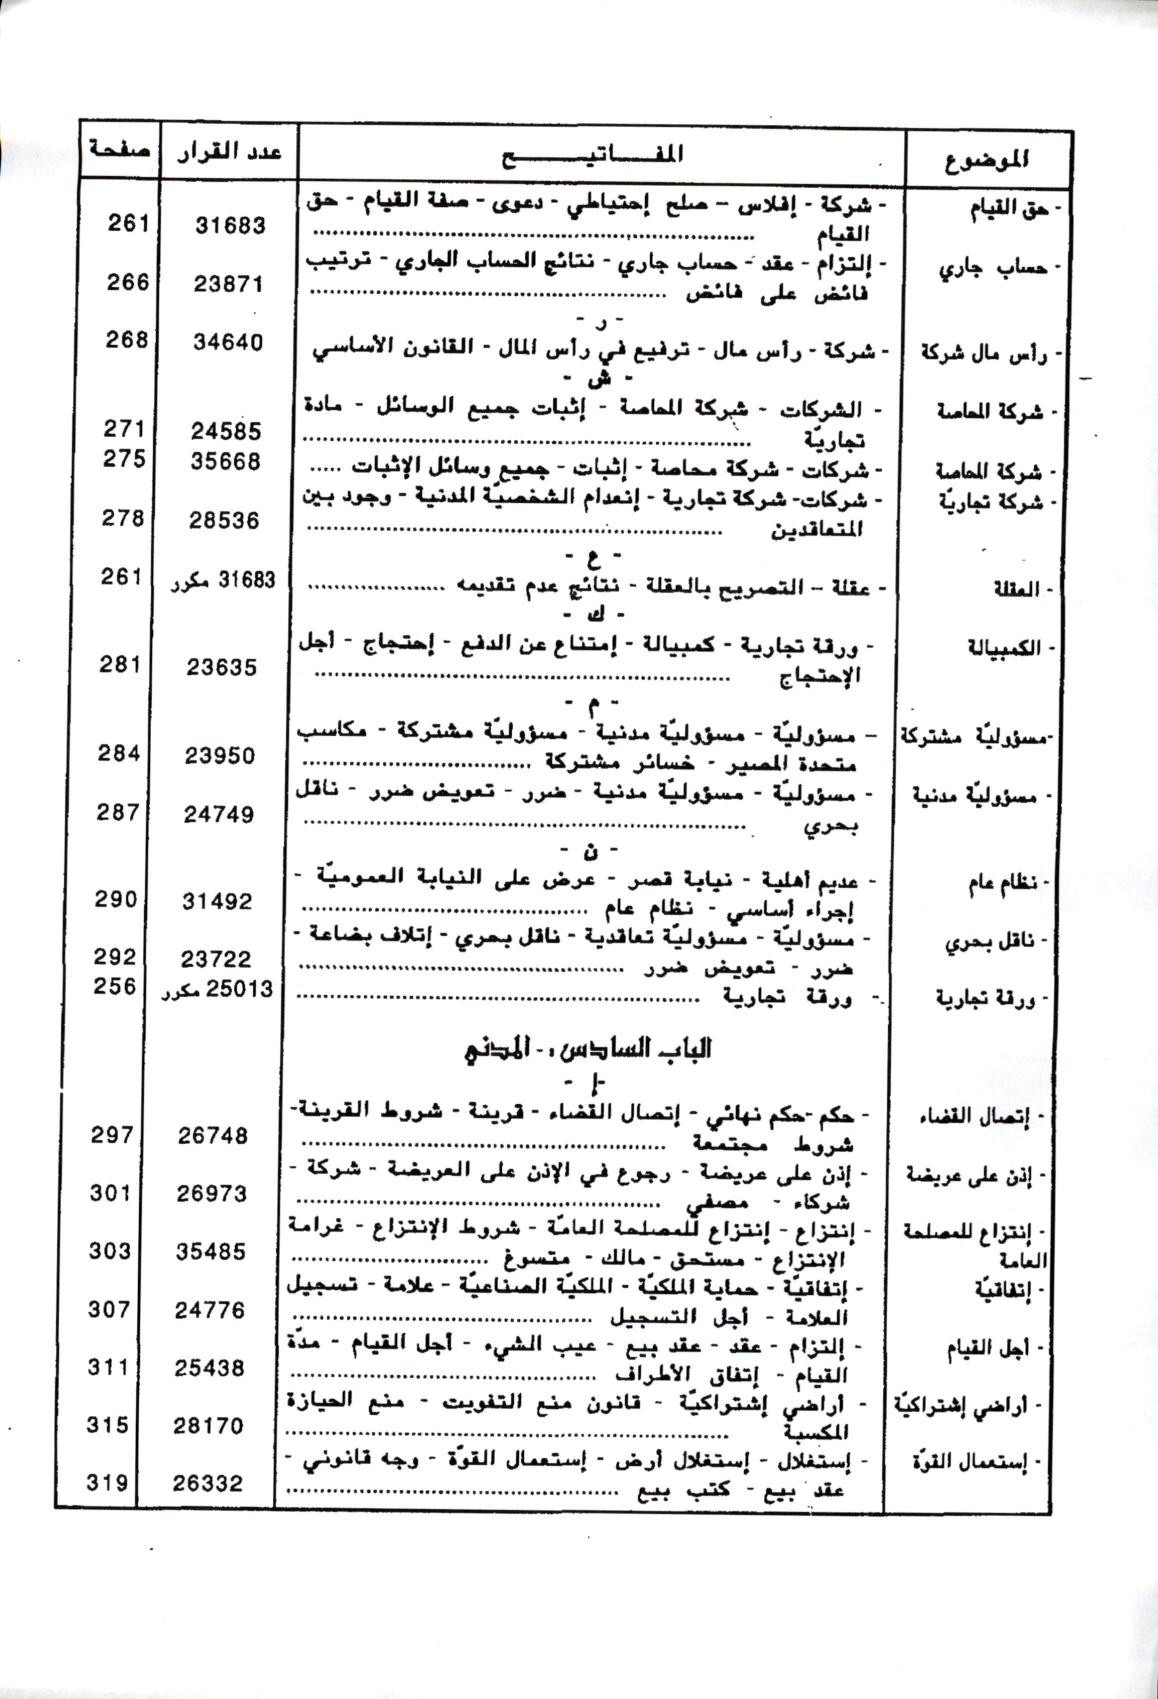 الموضوع المفـــاتيـــــح عدد القرار صفحة
- حق القيام - شركة - إفلاس – صلح إحتياطي - دعوى - صفة القيام - حق
القيام ........ 31683 261
- حساب جاري - إلتزام - عقد - حساب جاري - نتائج الحساب الجاري - ترتيب
فائض على فائض ........ 23871 266
- ر -
- رأس مال شركة - شركة - رأس مال - ترفيع في رأس المال - القانون الأساسي 34640 268
- ش -
- شركة المحاصة - الشركات - شركة المحاصة - إثبات جميع الوسائل - مادة
تجاريّة ........ 24585 271
- شركة المحاصة - شركات - شركة محاصة - إثبات - جميع وسائل الإثبات ..... 35668 275
- شركة تجاريّة - شركات- شركة تجارية - إنعدام الشخصيّة المدنية - وجود بين
المتعاقدين ........ 28536 278
- ع -
- العقلة - عقلة – التصريح بالعقلة - نتائج عدم تقديمه ........ 31683 مكرر 261
- ك -
- الكمبيالة - ورقة تجارية - كمبيالة - إمتناع عن الدفع - إحتجاج - أجل
الإحتجاج ........ 23635 281
- م -
-مسؤوليّة مشتركة – مسؤوليّة - مسؤوليّة مدنية - مسؤوليّة مشتركة - مكاسب
متحدة المصير - خسائر مشتركة ........ 23950 284
- مسؤوليّة مدنية - مسؤوليّة - مسؤوليّة مدنية - ضرر - تعويض ضرر - ناقل
بحري ........ 24749 287
- ن -
- نظام عام - عديم أهلية - نيابة قصر - عرض على النيابة العموميّة -
إجراء أساسي - نظام عام ........ 31492 290
- ناقل بحري - مسؤوليّة - مسؤوليّة تعاقدية - ناقل بحري - إتلاف بضاعة -
ضرر - تعويض ضرر ........ 23722 292
- ورقة تجارية - ورقة تجارية ........ 25013 مكرر 256
الباب السادس .- المدني
-إ -
- إتصال القضاء - حكم -حكم نهائي - إتصال القضاء - قرينة - شروط القرينة-
شروط مجتمعة ........ 26748 297
- إذن على عريضة - إذن على عريضة - رجوع في الإذن على العريضة - شركة -
شركاء - مصفي ........ 26973 301
- إنتزاع للمصلحة - إنتزاع - إنتزاع للمصلحة العامّة - شروط الإنتزاع - غرامة
العامة الإنتزاع - مستحق - مالك - متسوغ ........ 35485 303
- إتفاقيّة - إتفاقيّة - حماية الملكيّة - الملكيّة الصناعيّة - علامة - تسجيل
العلامة - أجل التسجيل ........ 24776 307
- أجل القيام - إلتزام - عقد - عقد بيع - عيب الشيء - أجل القيام - مدّة
القيام - إتفاق الأطراف ........ 25438 311
- أراضي إشتراكيّة - أراضي إشتراكيّة - قانون منع التفويت - منع الحيازة
المكسبة ........ 28170 315
- إستعمال القوّة - إستغلال - إستغلال أرض - إستعمال القوّة - وجه قانوني -
عقد بيع - كتب بيع ........ 26332 319